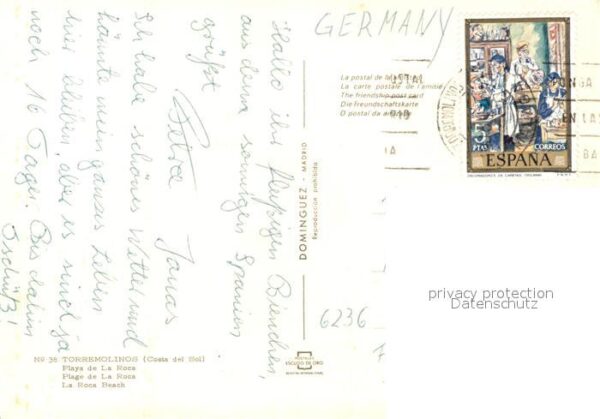 GERMANY
Hallo ihr fleißigen Bienchen,
aus dem sonnigen Spanien
grüßt
Petra
Ich habe schönes Wetter und
könnte mein ganzes Leben
hier bleiben, aber es sind ja
noch 16 Tage. Bis dahin
Tschüß!
La postal de la
La carte postale de l'amitié
The friendship post card
Die Freundschaftskarte
O postal da
DOMINGUEZ - MADRID
Reproducción prohibida
5
PTAS
CORREOS
ESPAÑA
privacy protection
Datenschutz
6236
POSTALES
ESCUDO DE ORO
Nº 38 TORREMOLINOS (Costa del Sol)
Playa de La Roca
Plage de La Roca
La Roca Beach